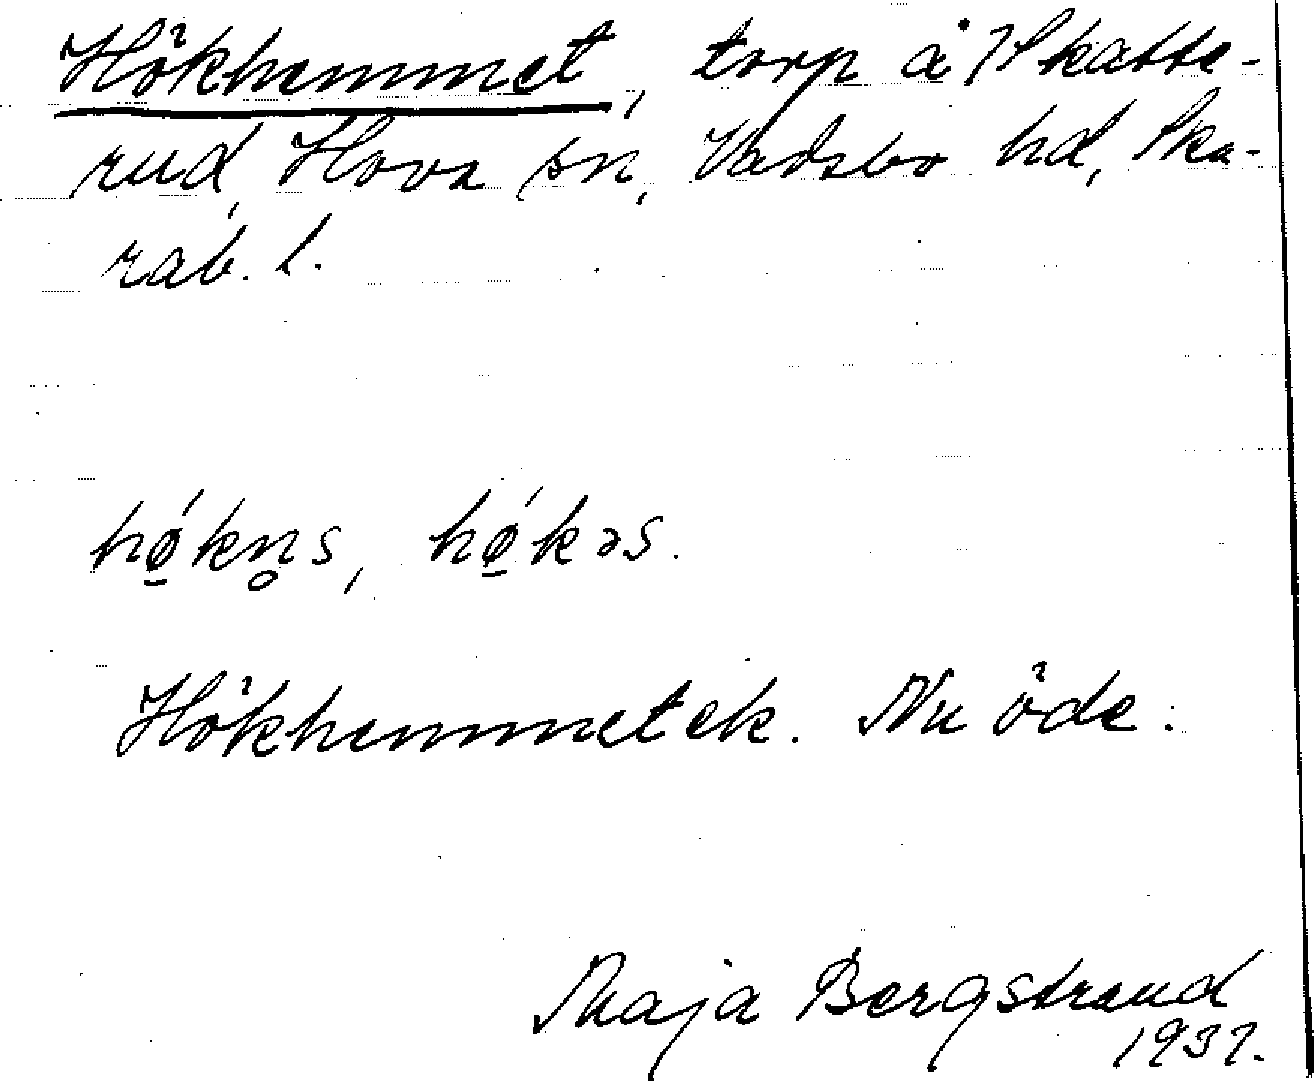 Hökhemmet, torp å Skatte-
rud, Hova sn, Vadsbo hd, Ska-
rab. l.
hǿ̱kn̥s, hǿ̱kəs.
Hökhemmet ek. Nu öde.
Maja Bergstrand
1937.